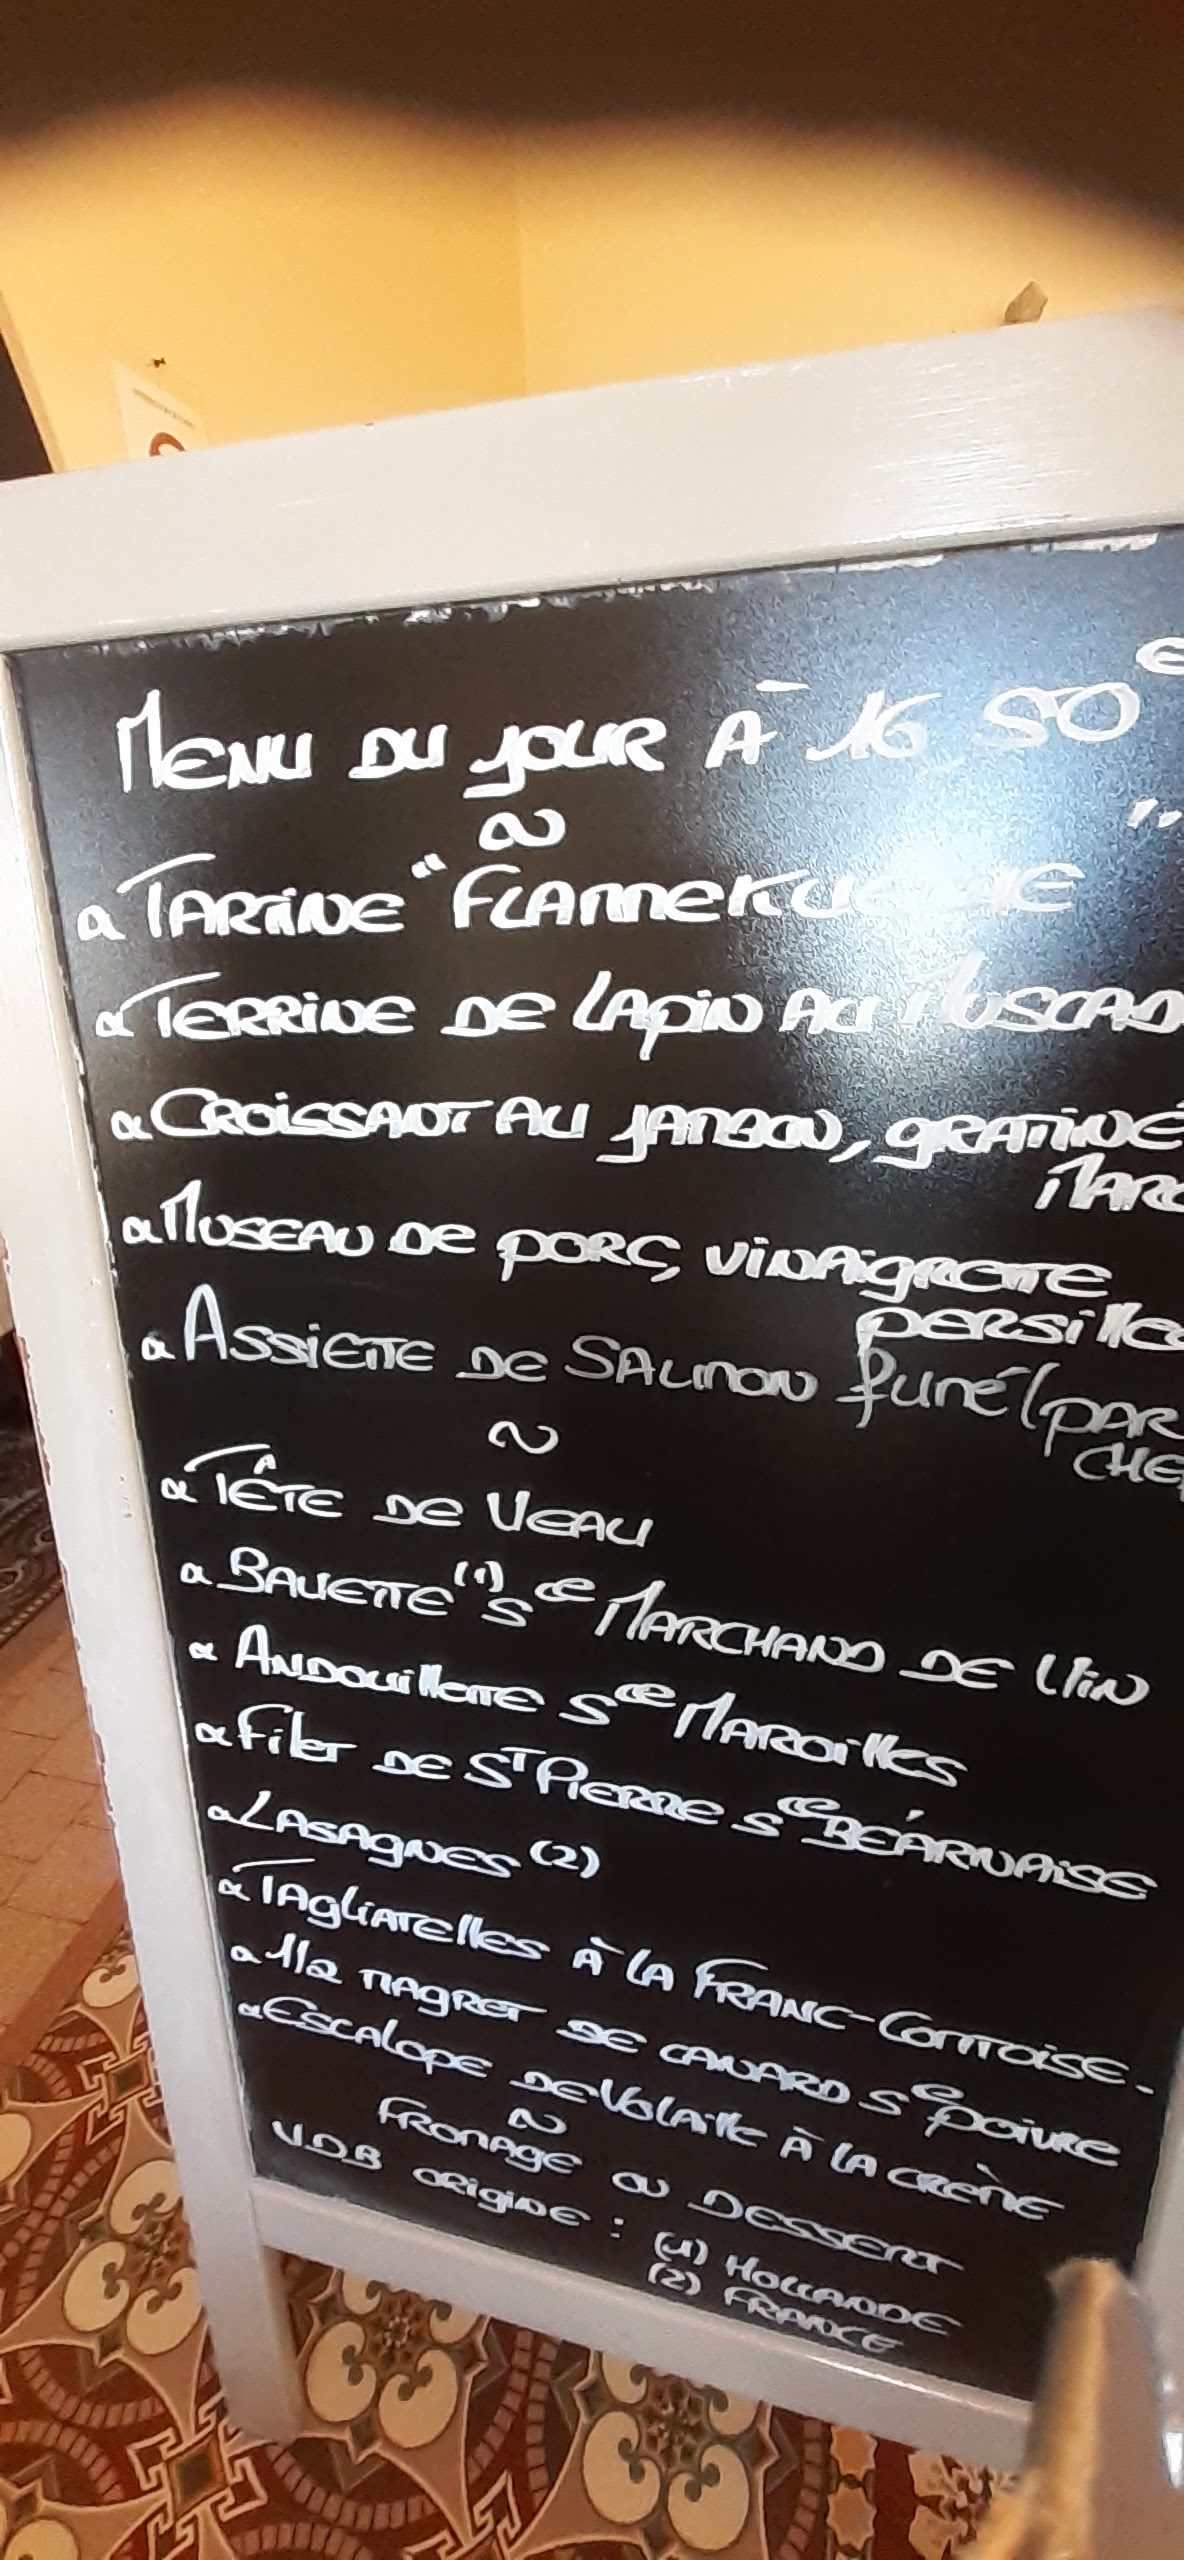 MENU DU JOUR À 16 50 €
~
TARTINE "
TERRINE DE LAPIN AU
CROISSANT AU JAMBON, GRATINÉ
MUSEAU DE PORC, VINAIGRETTE
ASSIETTE DE SAUMON FUMÉ (PAR
~
TÊTE DE VEAU
BAVETTE (1) Sce MARCHAND DE VIN
ANDOUILLETTE Sce MAROILLES
FILET DE ST PIERRE Sce BÉARNAISE
LASAGNES (2)
TAGLIATELLES À LA FRANC-COMTOISE.
1/2 MAGRET DE CANARD Sce POIVRE
ESCALOPE DE VOLAILLE À LA CRÈME
~
FROMAGE OU DESSERT
V.D.B ORIGINE : (1) HOLLANDE
(2) FRANCE